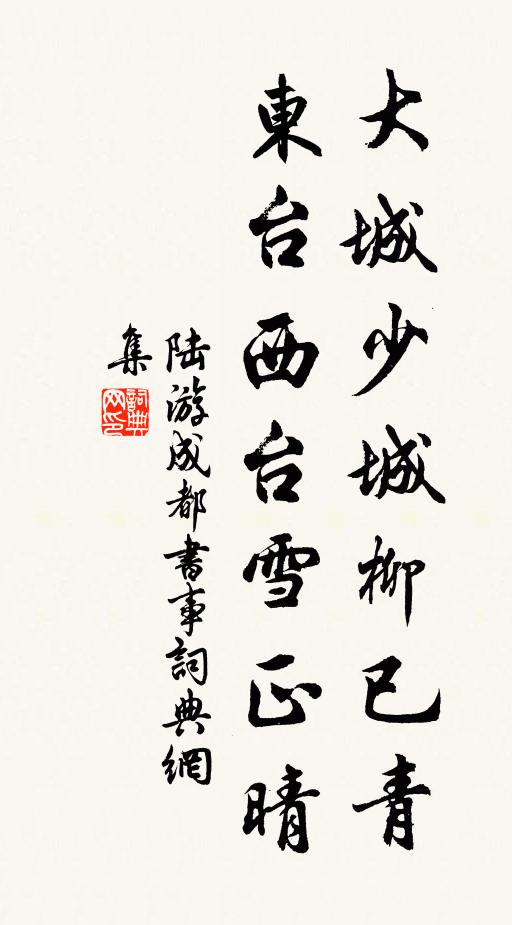 大城少城柳已青
東台西台雪正晴
陆游成都書事詞典網
集
詞典
网印